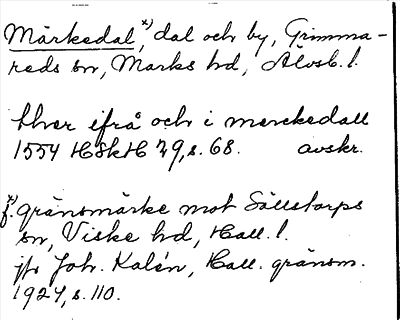 Märkedal,ˣ⁾ dal och by, Grimma-
reds sn, Marks hd, Älvsb. l.
thær ifrå och i merckedall
1554 HSkH 29, s. 68. avskr.
ˣ⁾ f. gränsmärke mot Sällstorps
sn, Viske hd, Hall. l.
jfr Joh. Kalén, Hall. gränsm.
1924, s. 110.